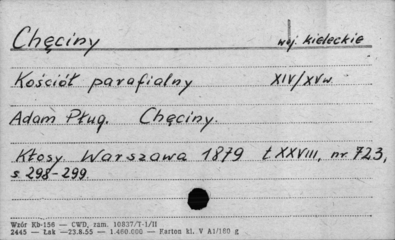 Chęciny woj. kieleckie
Kościół parafialny XIV/XVw.
Adam Pług. Chęciny.
Kłosy. Warszawa 1879 t. XXVIII, nr. 723,
s. 298-299.
Wzór Kb-156 — CWD, zam. 10837/T-1/II
2445 — Łak —23.8.55 — 1.460.000 — Karton kl. V A1/180 g